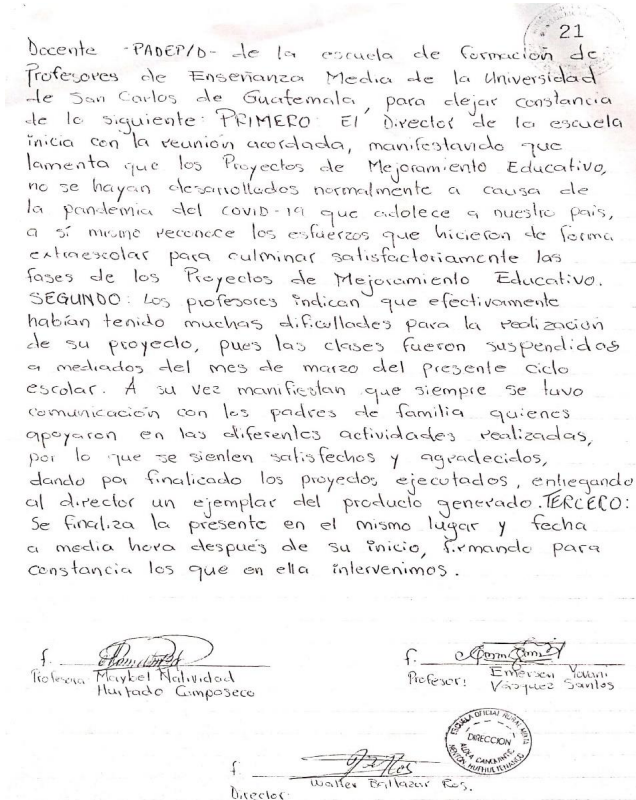 21
Docente -PADEP/D- de la escuela de formación de
Profesores de Enseñanza Media de la Universidad
de San Carlos de Guatemala, para dejar constancia
de lo siguiente: PRIMERO: El Director de la escuela
inicia con la reunión acordada, manifestando que
lamenta que los Proyectos de Mejoramiento Educativo,
no se hayan desarrollados normalmente a causa de
la pandemia del covid-19 que adolece a nuestro país,
a sí mismo reconoce los esfuerzos que hicieron de forma
extraescolar para culminar satisfactoriamente las
fases de los Proyectos de Mejoramiento Educativo.
SEGUNDO: Los profesores indican que efectivamente
habían tenido muchas dificultades para la realización
de su proyecto, pues las clases fueron suspendidas
a mediados del mes de marzo del presente ciclo
escolar. A su vez manifiestan que siempre se tuvo
comunicación con los padres de familia quienes
apoyaron en las diferentes actividades realizadas,
por lo que se sienten satisfechos y agradecidos,
dando por finalicado los proyectos ejecutados, entregando
al director un ejemplar del producto generado. TERCERO:
Se finaliza la presente en el mismo lugar y fecha
a media hora después de su inicio, firmando para
constancia los que en ella intervenimos.
f.
Profesora: Maybel Natividad
Hurtado Camposeco
f.
Profesor: Emerson Yovani
Vásquez Santos
ESCUELA OFICIAL RURAL MIXTA
DIRECCION
HUEHUETENANGO
f.
Director: Walter Baltazar Ros.